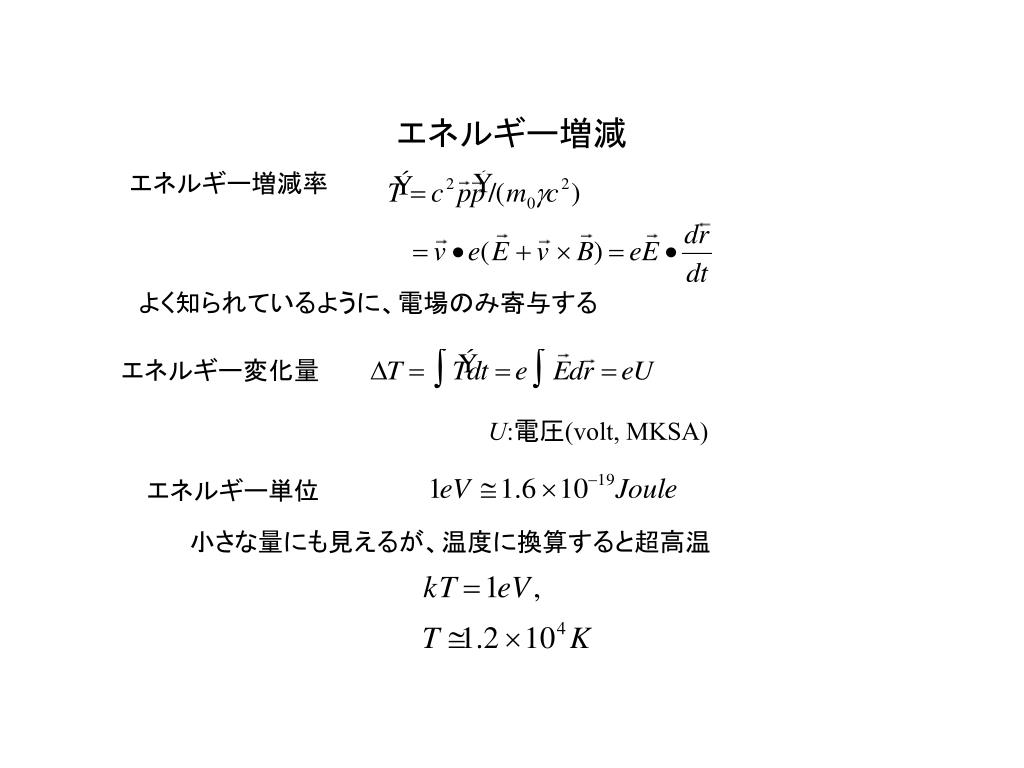 エネルギー増減
エネルギー増減率 Ṫ = c² p⃗ṗ⃗ /(m₀γc²)
= v⃗ • e(E⃗ + v⃗ × B⃗) = eE⃗ • dr⃗/dt
よく知られているように、電場のみ寄与する
エネルギー変化量 ΔT = ∫ Ṫdt = e ∫ E⃗dr⃗ = eU
U:電圧(volt, MKSA)
エネルギー単位 1eV ≅ 1.6 × 10⁻¹⁹ Joule
小さな量にも見えるが、温度に換算すると超高温
kT = 1eV,
T ≅ 1.2 × 10⁴ K